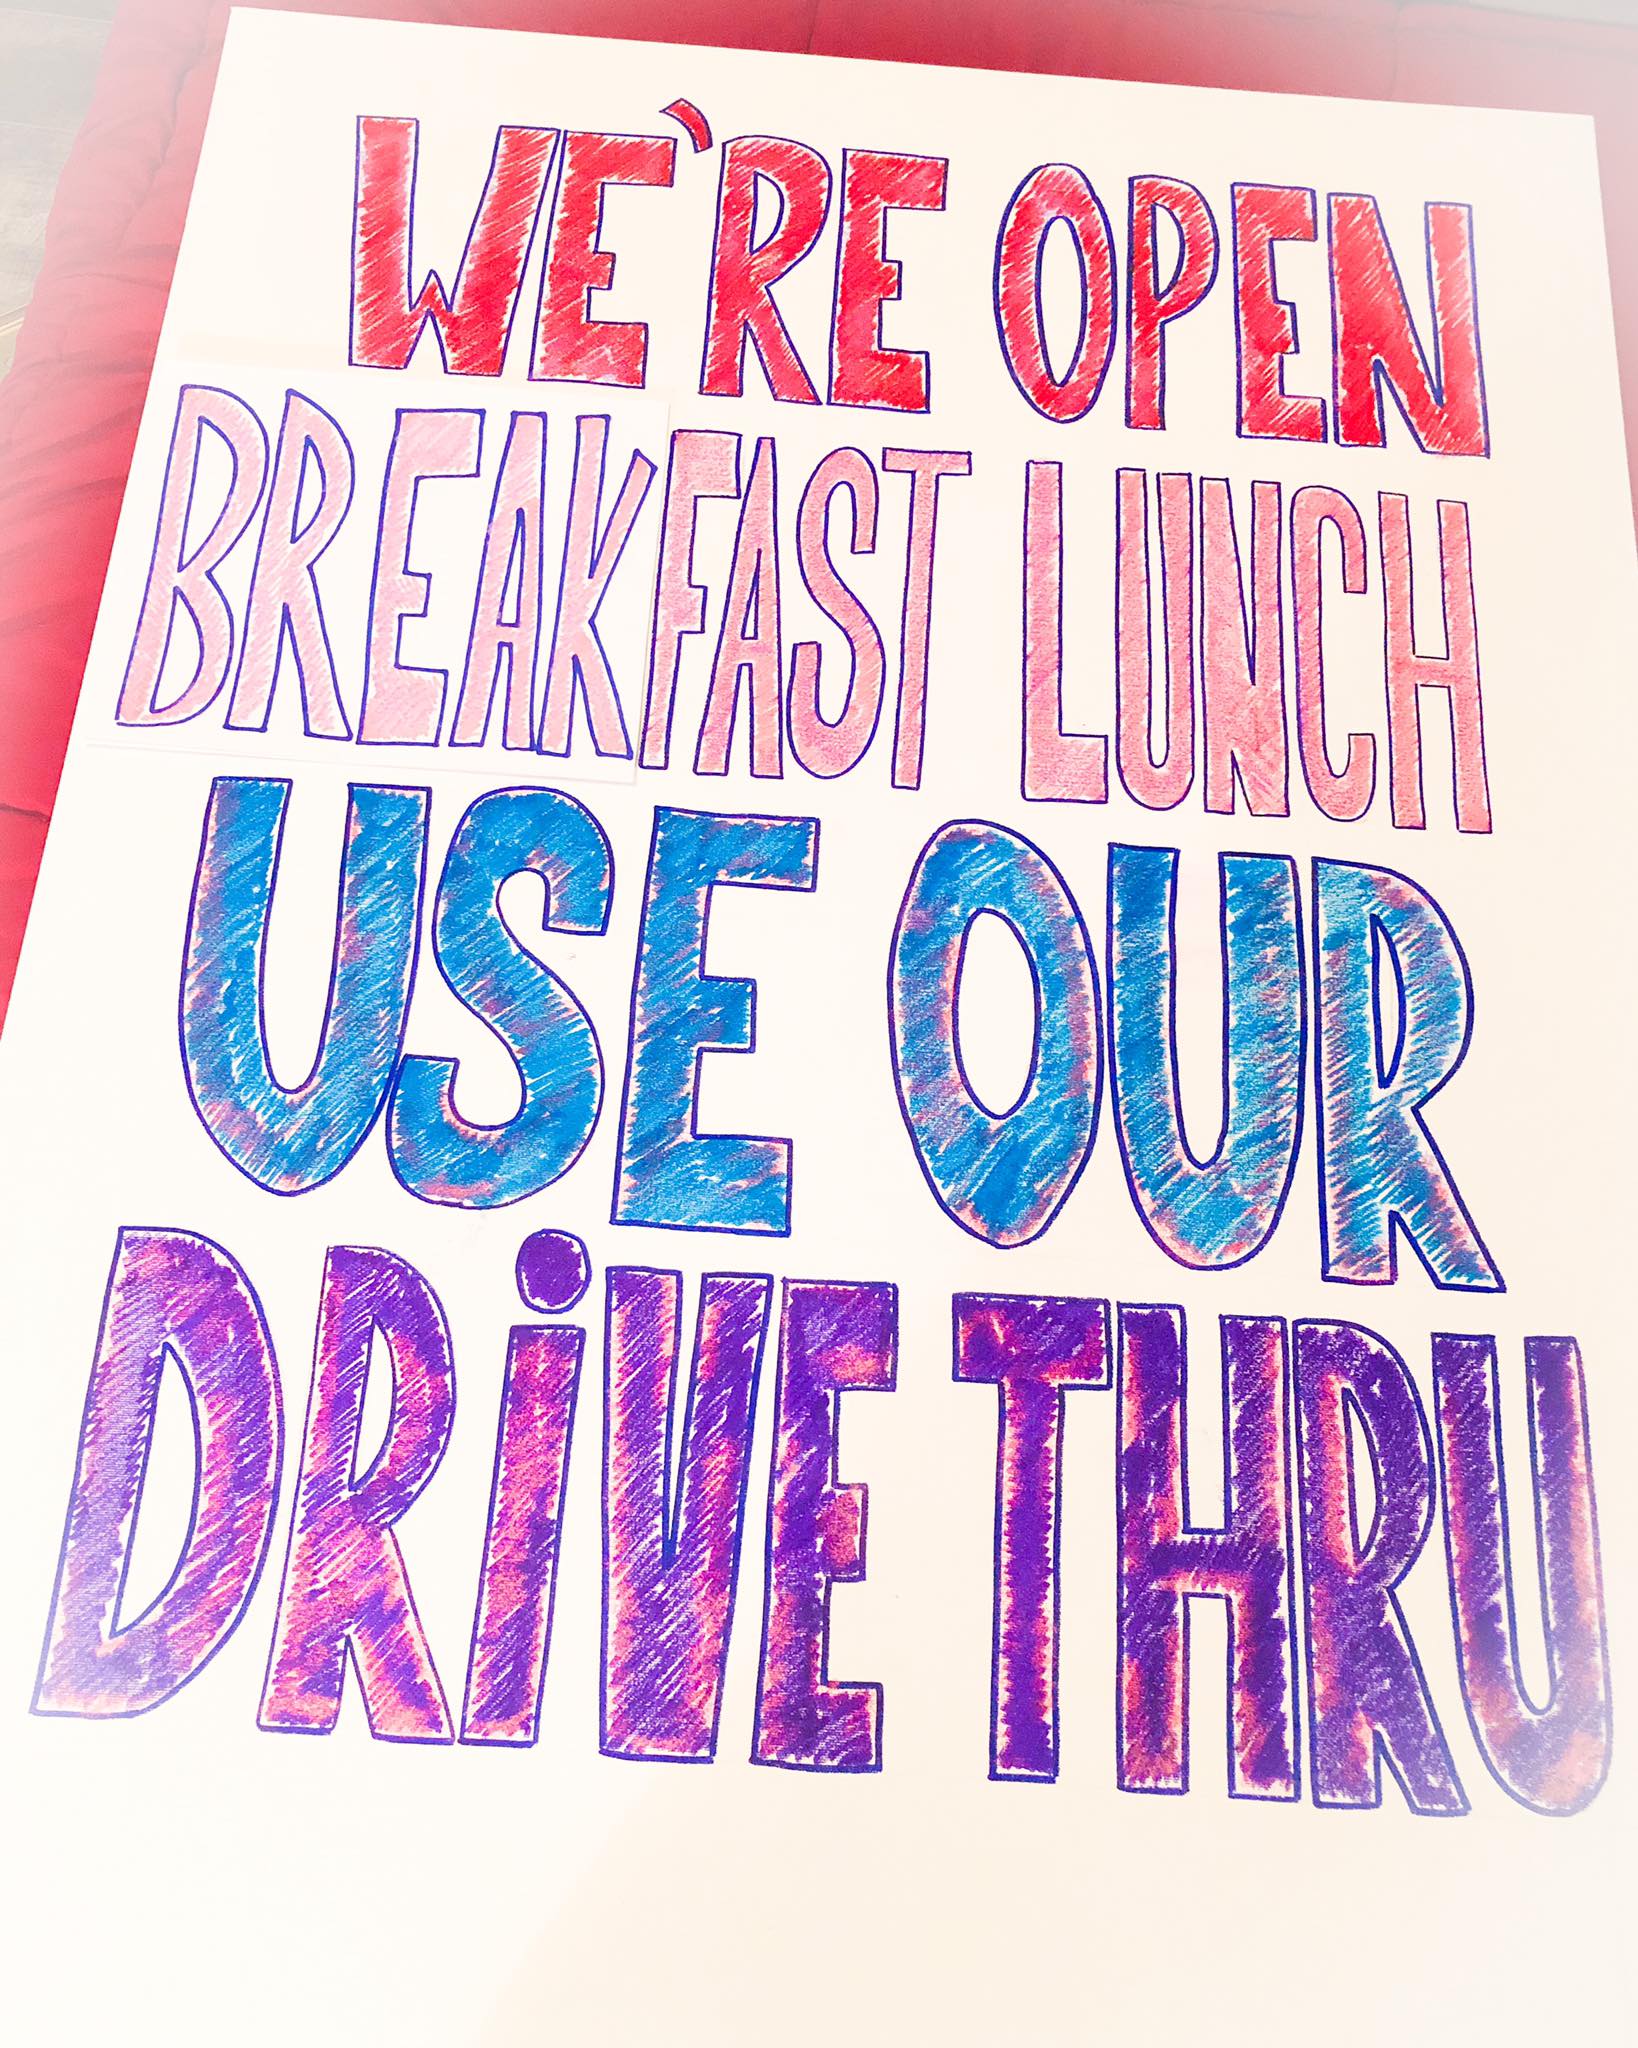 WE'RE OPEN
BREAKFAST LUNCH
USE OUR
DRiVE THRU